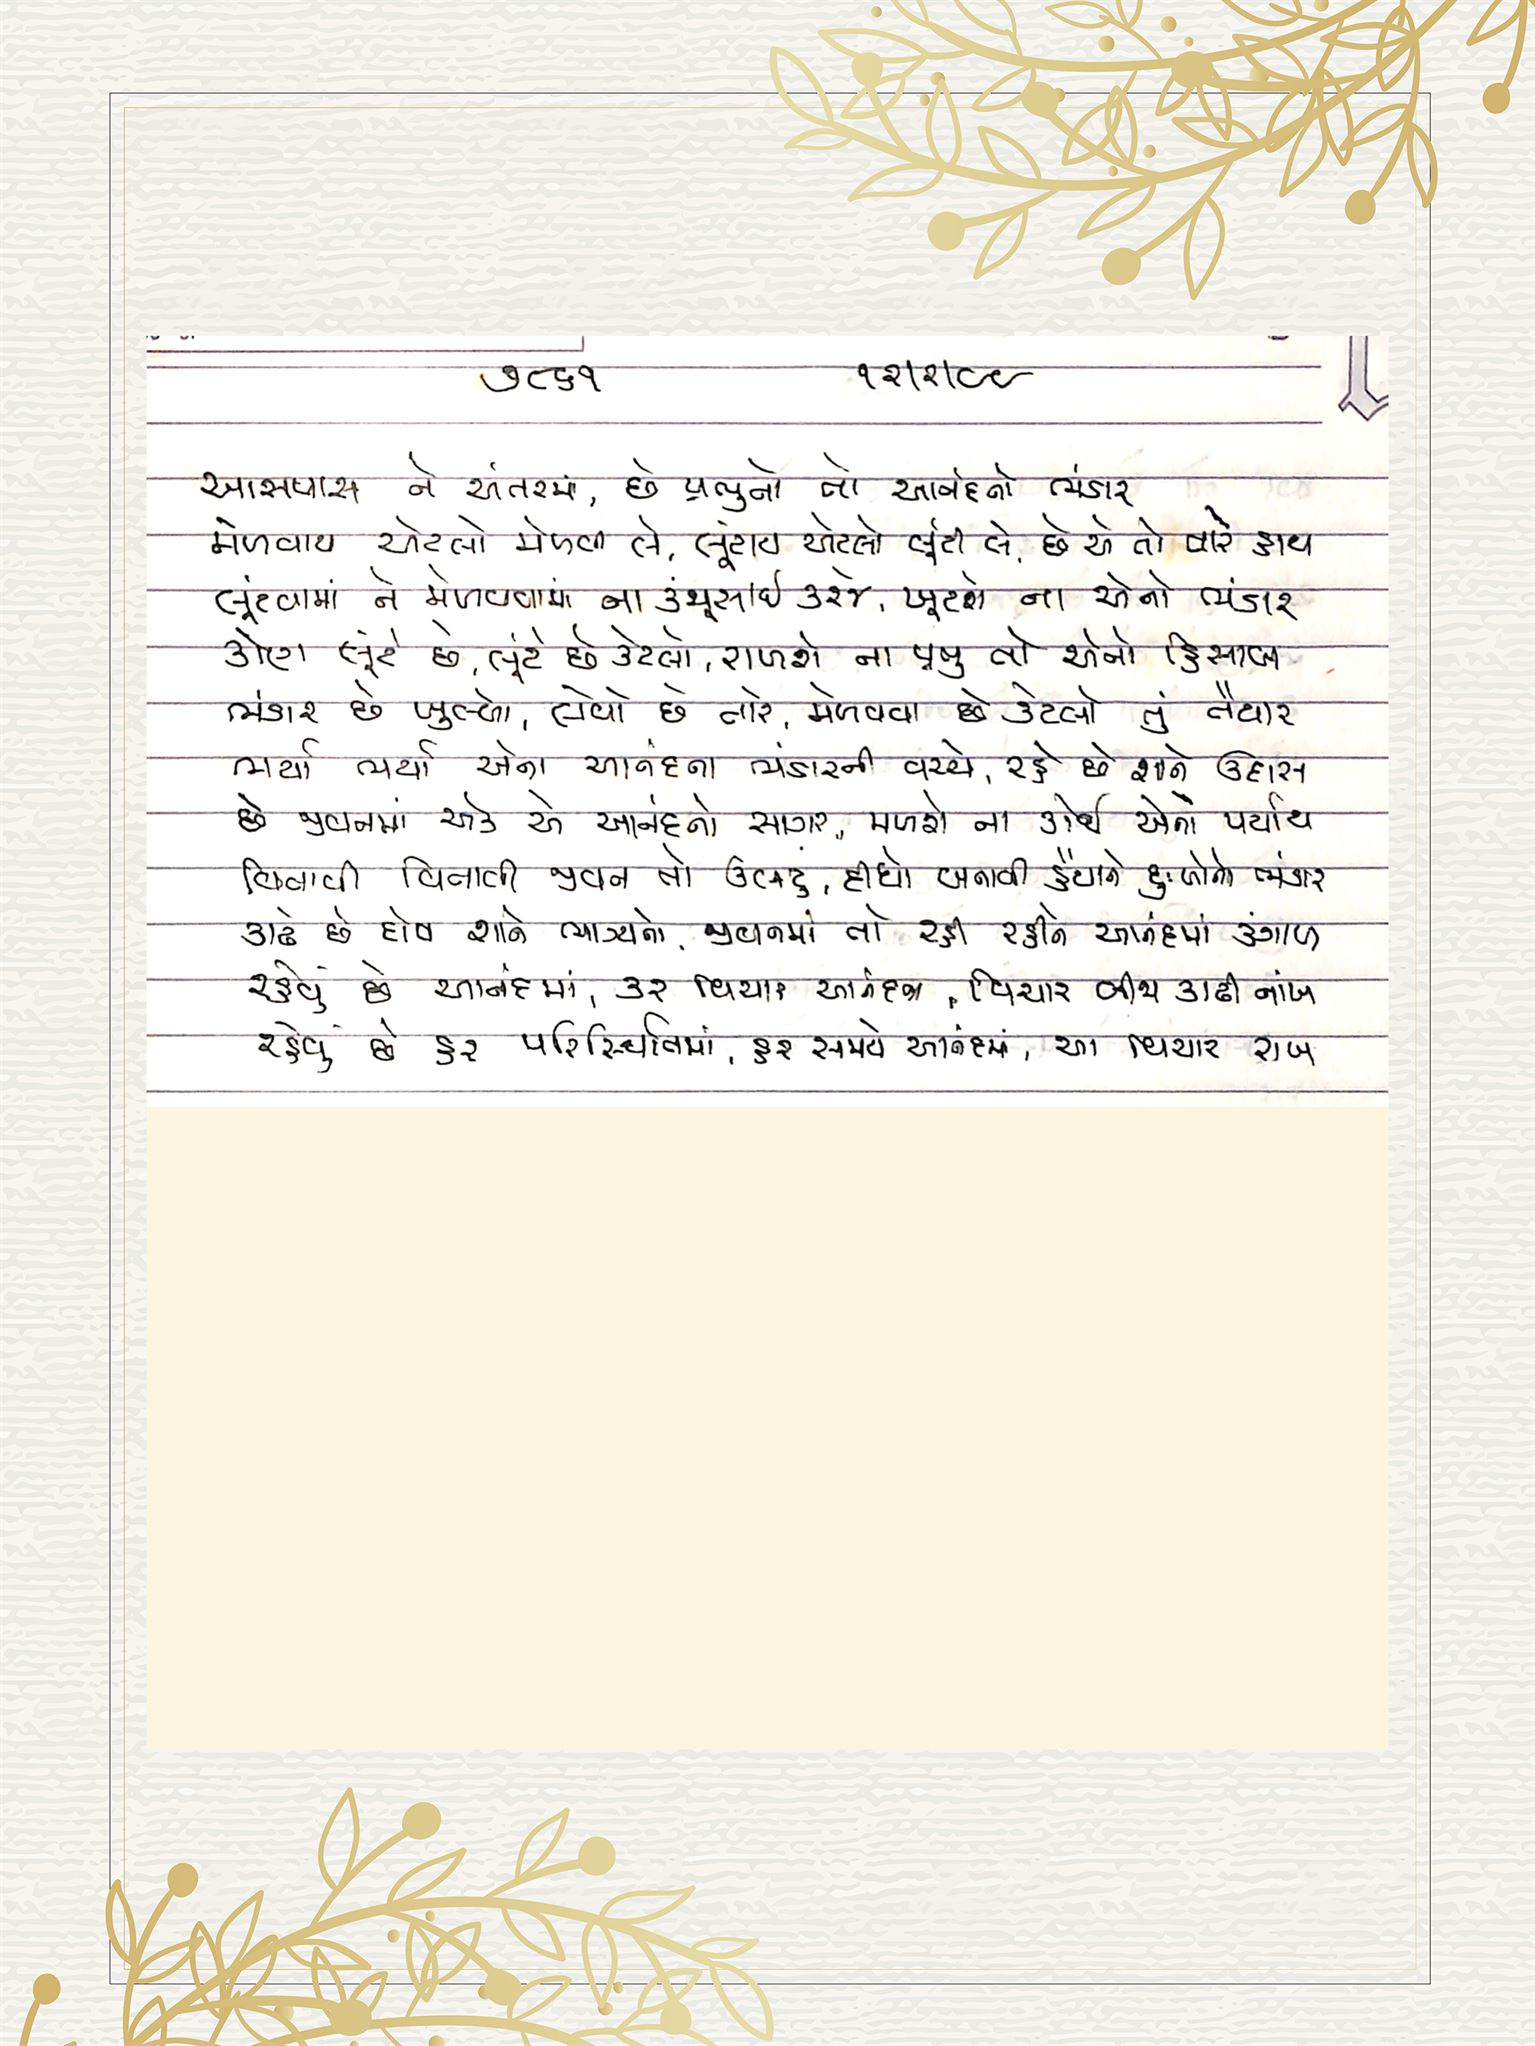 ૭૮૬૧ ૧૨/૨/૯૯
આસપાસ ને અંતરમાં, છે પ્રભુનો તો આનંદનો ભંડાર
મેળવાય એટલો મેળવી લે, લૂંટાય એટલો લૂંટી લે, છે એ તો તારે હાથ
લૂંટવામાં ને મેળવવામાં ના કંજૂસાઈ કરજે, ખૂટશે ના એનો ભંડાર
કોણ લૂંટે છે, લૂંટે છે કેટલો, રાખશે ના પ્રભુ તો એનો હિસાબ
ભંડાર છે ખુલ્લો, લેવો છે તારે, મેળવવા છે કેટલો તું તૈયાર
ભર્યા ભર્યા એના આનંદના ભંડારની વચ્ચે, રહે છે શાને ઉદાસ
છે જીવનમાં એક એ આનંદનો સાગર, મળશે ના કોઈ એનો પર્યાય
વિતાવી વિતાવી જીવન તો ઉલટું, દીધો બનાવી હૈયાને દુઃખોનો ભંડાર
કાઢે છે દોષ શાને ભાગ્યનો, જીવનમાં તો રહી રહીને આનંદમાં કંગાળ
રહેવું છે આનંદમાં, કર વિચાર આનંદના, વિચાર બીજા કાઢી નાંખ
રહેવું છે હર પરિસ્થિતિમાં, હર સમયે આનંદમાં, આ વિચાર રાખ